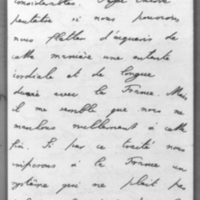 considérables. Passe encore
peutêtre si nous pouvions
nous flatter d'acquérir de
cette manière une entente
cordiale et de longue
durée avec la France. Mais
il me semble que nous ne
marchons nullement à cette
fin. Si par ce traité nous
imposons à la France un
système qui ne plait pas